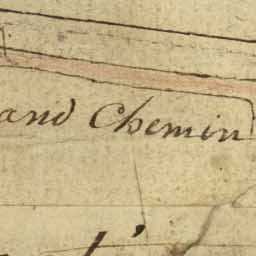 and Chemin